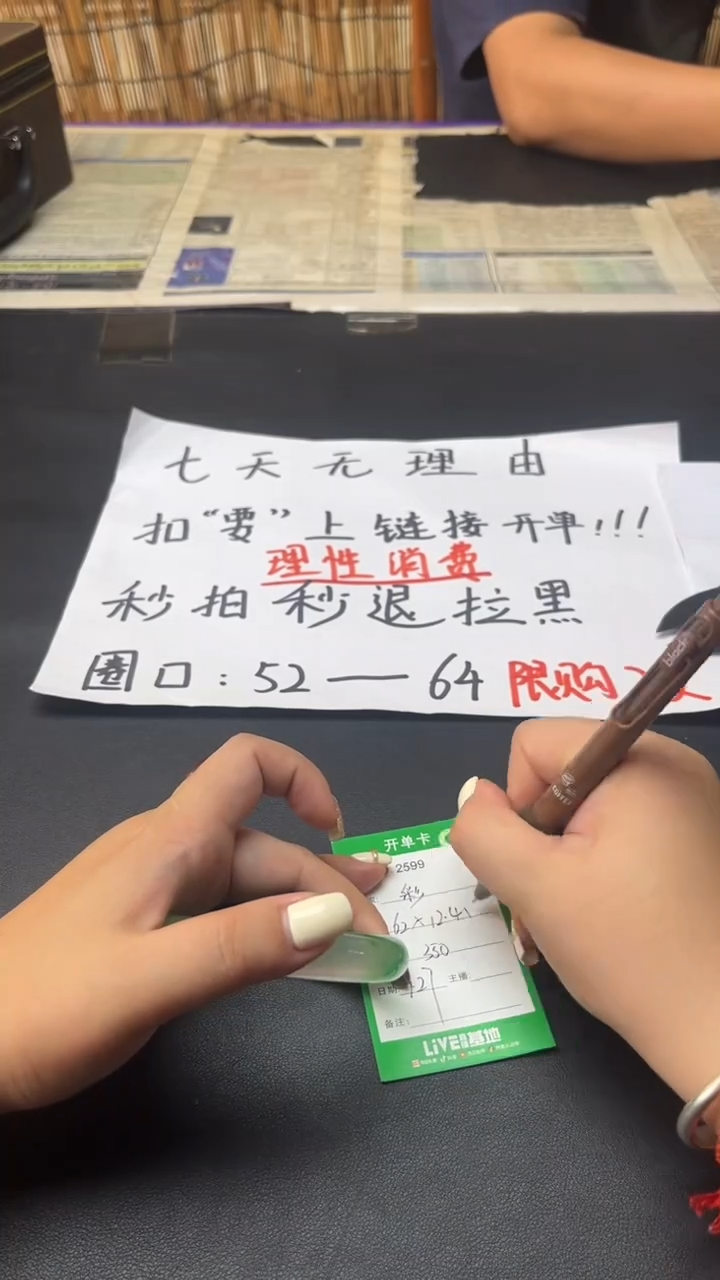 七天无理由
扣“要”上链接开单!!!
理性消费
秒拍秒退拉黑
圈口:52—64 限购
开单卡
2599
秒
62×12.41
350
日期: 主播:
备注:
LiVE 基地